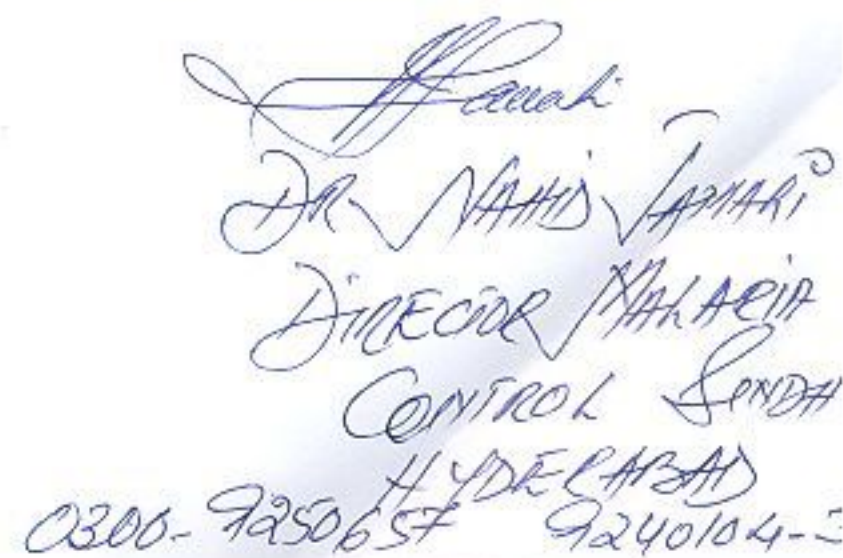 DR NAHID JAMALI
DIRECTOR MALARIA
CONTROL SINDH
HYDERABAD
0300-9250657 9240104-3